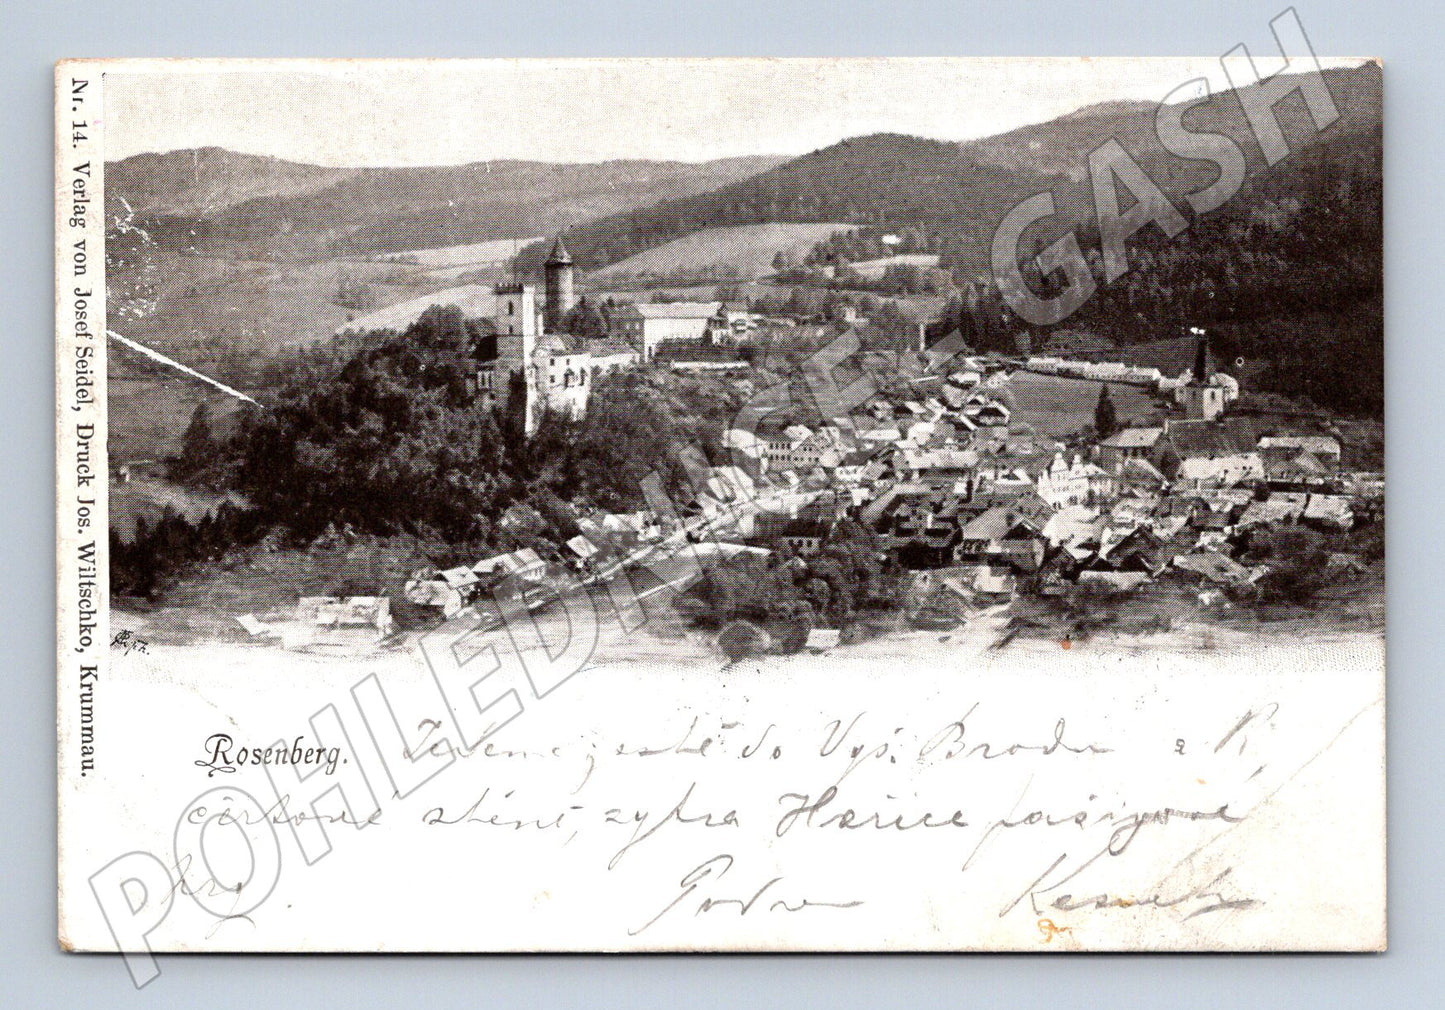 Nr. 14. Verlag von Josef Seidel, Druck Jos. Wiltschko, Krummau.
Rosenberg.
ještě do Vyš. Brodu a K
čertově stěně, zytra Hořice pašijové
hry.
POHLEDNICE-GASH